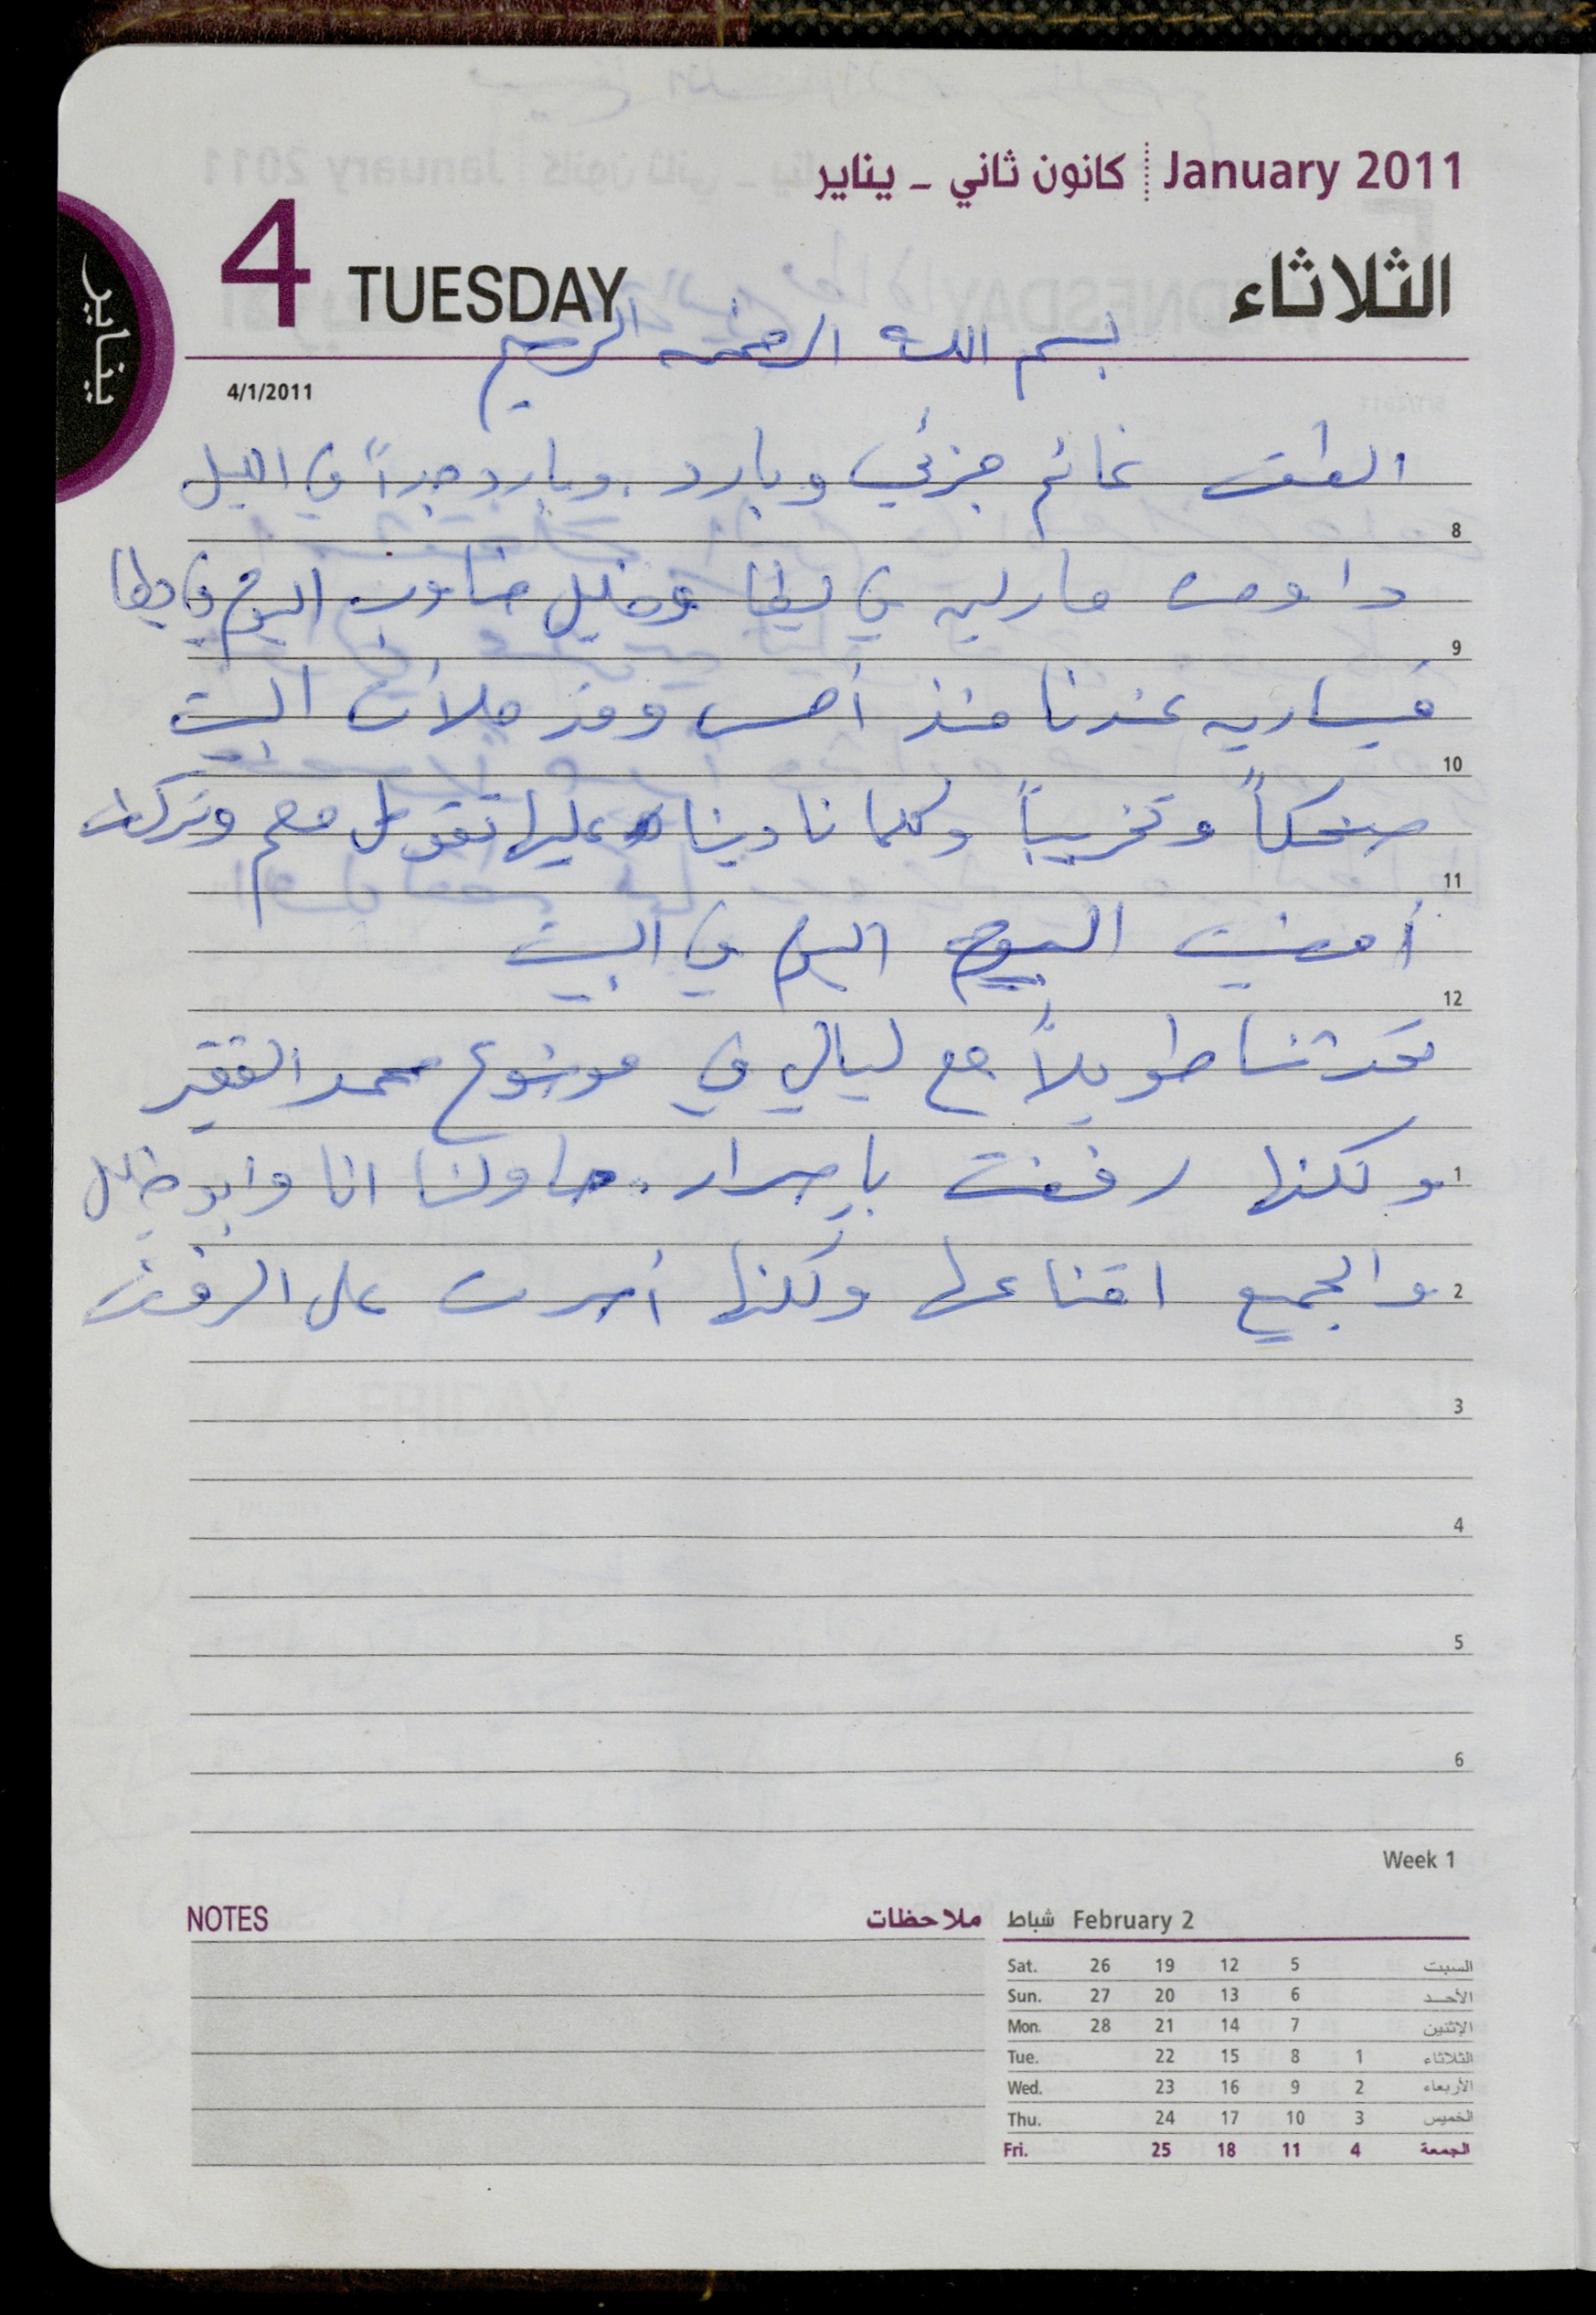 January 2011 كانون ثاني - يناير
4 TUESDAY الثلاثاء
يناير
بسم الله الرحمن الرحيم
4/1/2011
الطقس غائم جزئي وبارد. وبارد جداً في الليل
8
داومت مارلين في يطا وخليل مناوب اليوم في يطا
9
ميسارين عندنا منذ أمس وقد ملأت البيت
10
ضحكاً وتخريباً وكلما نادينا عليها تقول معم وتركض
11
أمضيت اليوم اليوم في البيت
12
تحدثنا طويلاً مع ليالي في موضوع محمد الفقير
1 ولكنها رفضت بإصرار. حاولنا انا وابو خليل
2 والجميع اقناعها ولكنها أصرت على الرفض
3
4
5
6
Week 1
NOTES ملاحظات
شباط February 2
Sat. 26 19 12 5 السبت
Sun. 27 20 13 6 الأحد
Mon. 28 21 14 7 الإثنين
Tue. 22 15 8 1 الثلاثاء
Wed. 23 16 9 2 الأربعاء
Thu. 24 17 10 3 الخميس
Fri. 25 18 11 4 الجمعة